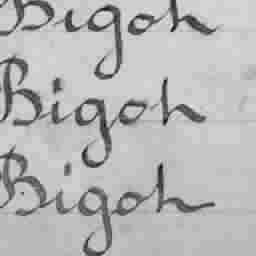 Bigoh
Bigoh
Bigoh